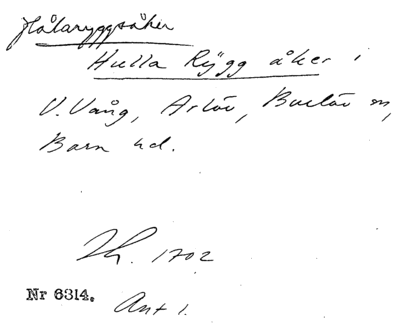 Hålaryggsåker
Hulla Rÿgg åker i
V. Vång, Arlöv, Burlöv sn,
Bara hd.
Lh. 1702
Nr 6314.
Ant 1.